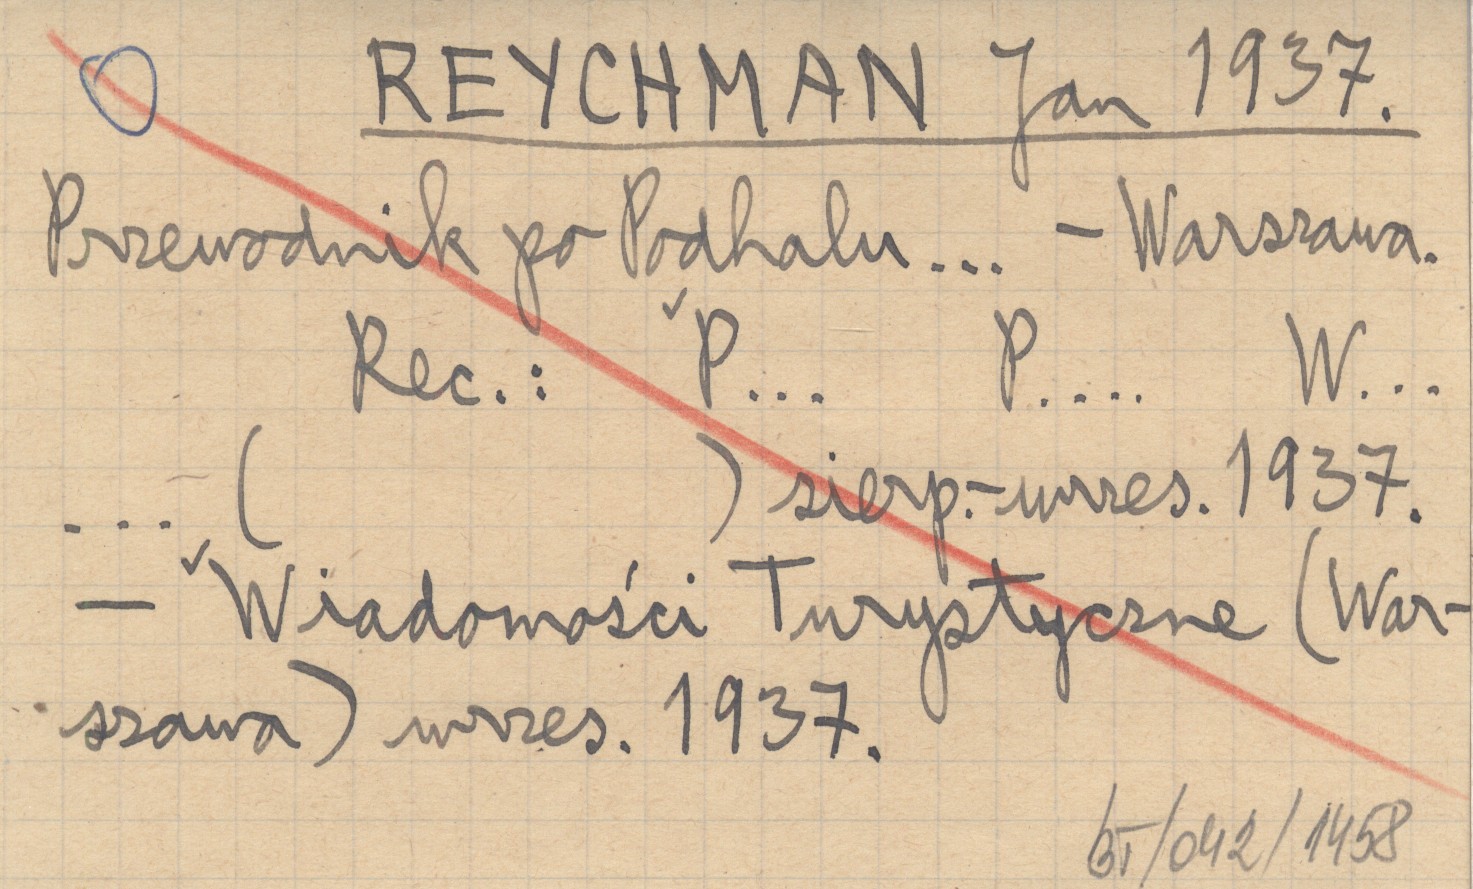 REYCHMAN Jan 1937.
Przewodnik po Podhalu... - Warszawa.
Rec.: ✓P... P.... W...
.... ( ) sierp.-wrzes. 1937.
— ✓Wiadomości Turystyczne (War-
szawa) wrzes. 1937.
BT/042/1458